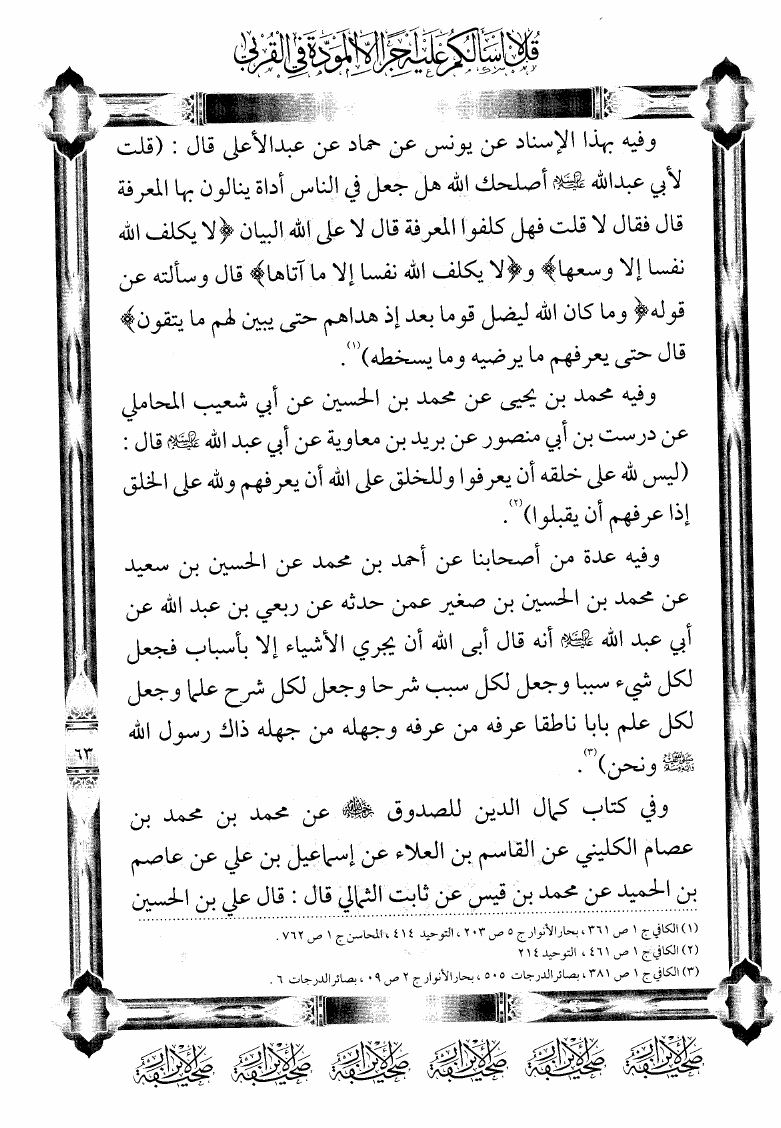 قل لا اسألكم عليه اجرا الا المودة في القربى
وفيه بهذا الإسناد عن يونس عن حماد عن عبدالأعلى قال : (قلت
لأبي عبدالله عليه السلام أصلحك الله هل جعل في الناس أداة ينالون بها المعرفة
قال فقال لا قلت فهل كلفوا المعرفة قال لا على الله البيان ﴿لا يكلف الله
نفسا إلا وسعها﴾ و﴿لا يكلف الله نفسا إلا ما آتاها﴾ قال وسألته عن
قوله﴿ وما كان الله ليضل قوما بعد إذ هداهم حتى يبين لهم ما يتقون﴾
قال حتى يعرفهم ما يرضيه وما يسخطه)(١).
وفيه محمد بن يحيى عن محمد بن الحسين عن أبي شعيب المحاملي
عن درست بن أبي منصور عن بريد بن معاوية عن أبي عبد الله عليه السلام قال :
(ليس لله على خلقه أن يعرفوا وللخلق على الله أن يعرفهم ولله على الخلق
إذا عرفهم أن يقبلوا)(٢).
وفيه عدة من أصحابنا عن أحمد بن محمد عن الحسين بن سعيد
عن محمد بن الحسين بن صغير عمن حدثه عن ربعي بن عبد الله عن
أبي عبد الله عليه السلام أنه قال أبى الله أن يجري الأشياء إلا بأسباب فجعل
لكل شيء سببا وجعل لكل سبب شرحا وجعل لكل شرح علما وجعل
لكل علم بابا ناطقا عرفه من عرفه وجهله من جهله ذاك رسول الله
ونحن)(٣).
٦٣
وفي كتاب كمال الدين للصدوق عن محمد بن محمد بن
عصام الكليني عن القاسم بن العلاء عن إسماعيل بن علي عن عاصم
بن الحميد عن محمد بن قيس عن ثابت الثمالي قال : قال علي بن الحسين
(١) الكافي ج ١ ص ٣٦١ ، بحار الأنوار ج ٥ ص ٢٠٣ ، التوحيد ٤١٤ ، المحاسن ج ١ ص ٧٦٢ .
(٢) الكافي ج ١ ص ٤٦١ ، التوحيد ٢١٤
(٣) الكافي ج ١ ص ٣٨١ ، بصائر الدرجات ٥٠٥ ، بحار الأنوار ج ٢ ص ٠٩ ، بصائر الدرجات ٦ .
صحيفة الأبرار صحيفة الأبرار صحيفة الأبرار صحيفة الأبرار صحيفة الأبرار صحيفة الأبرار